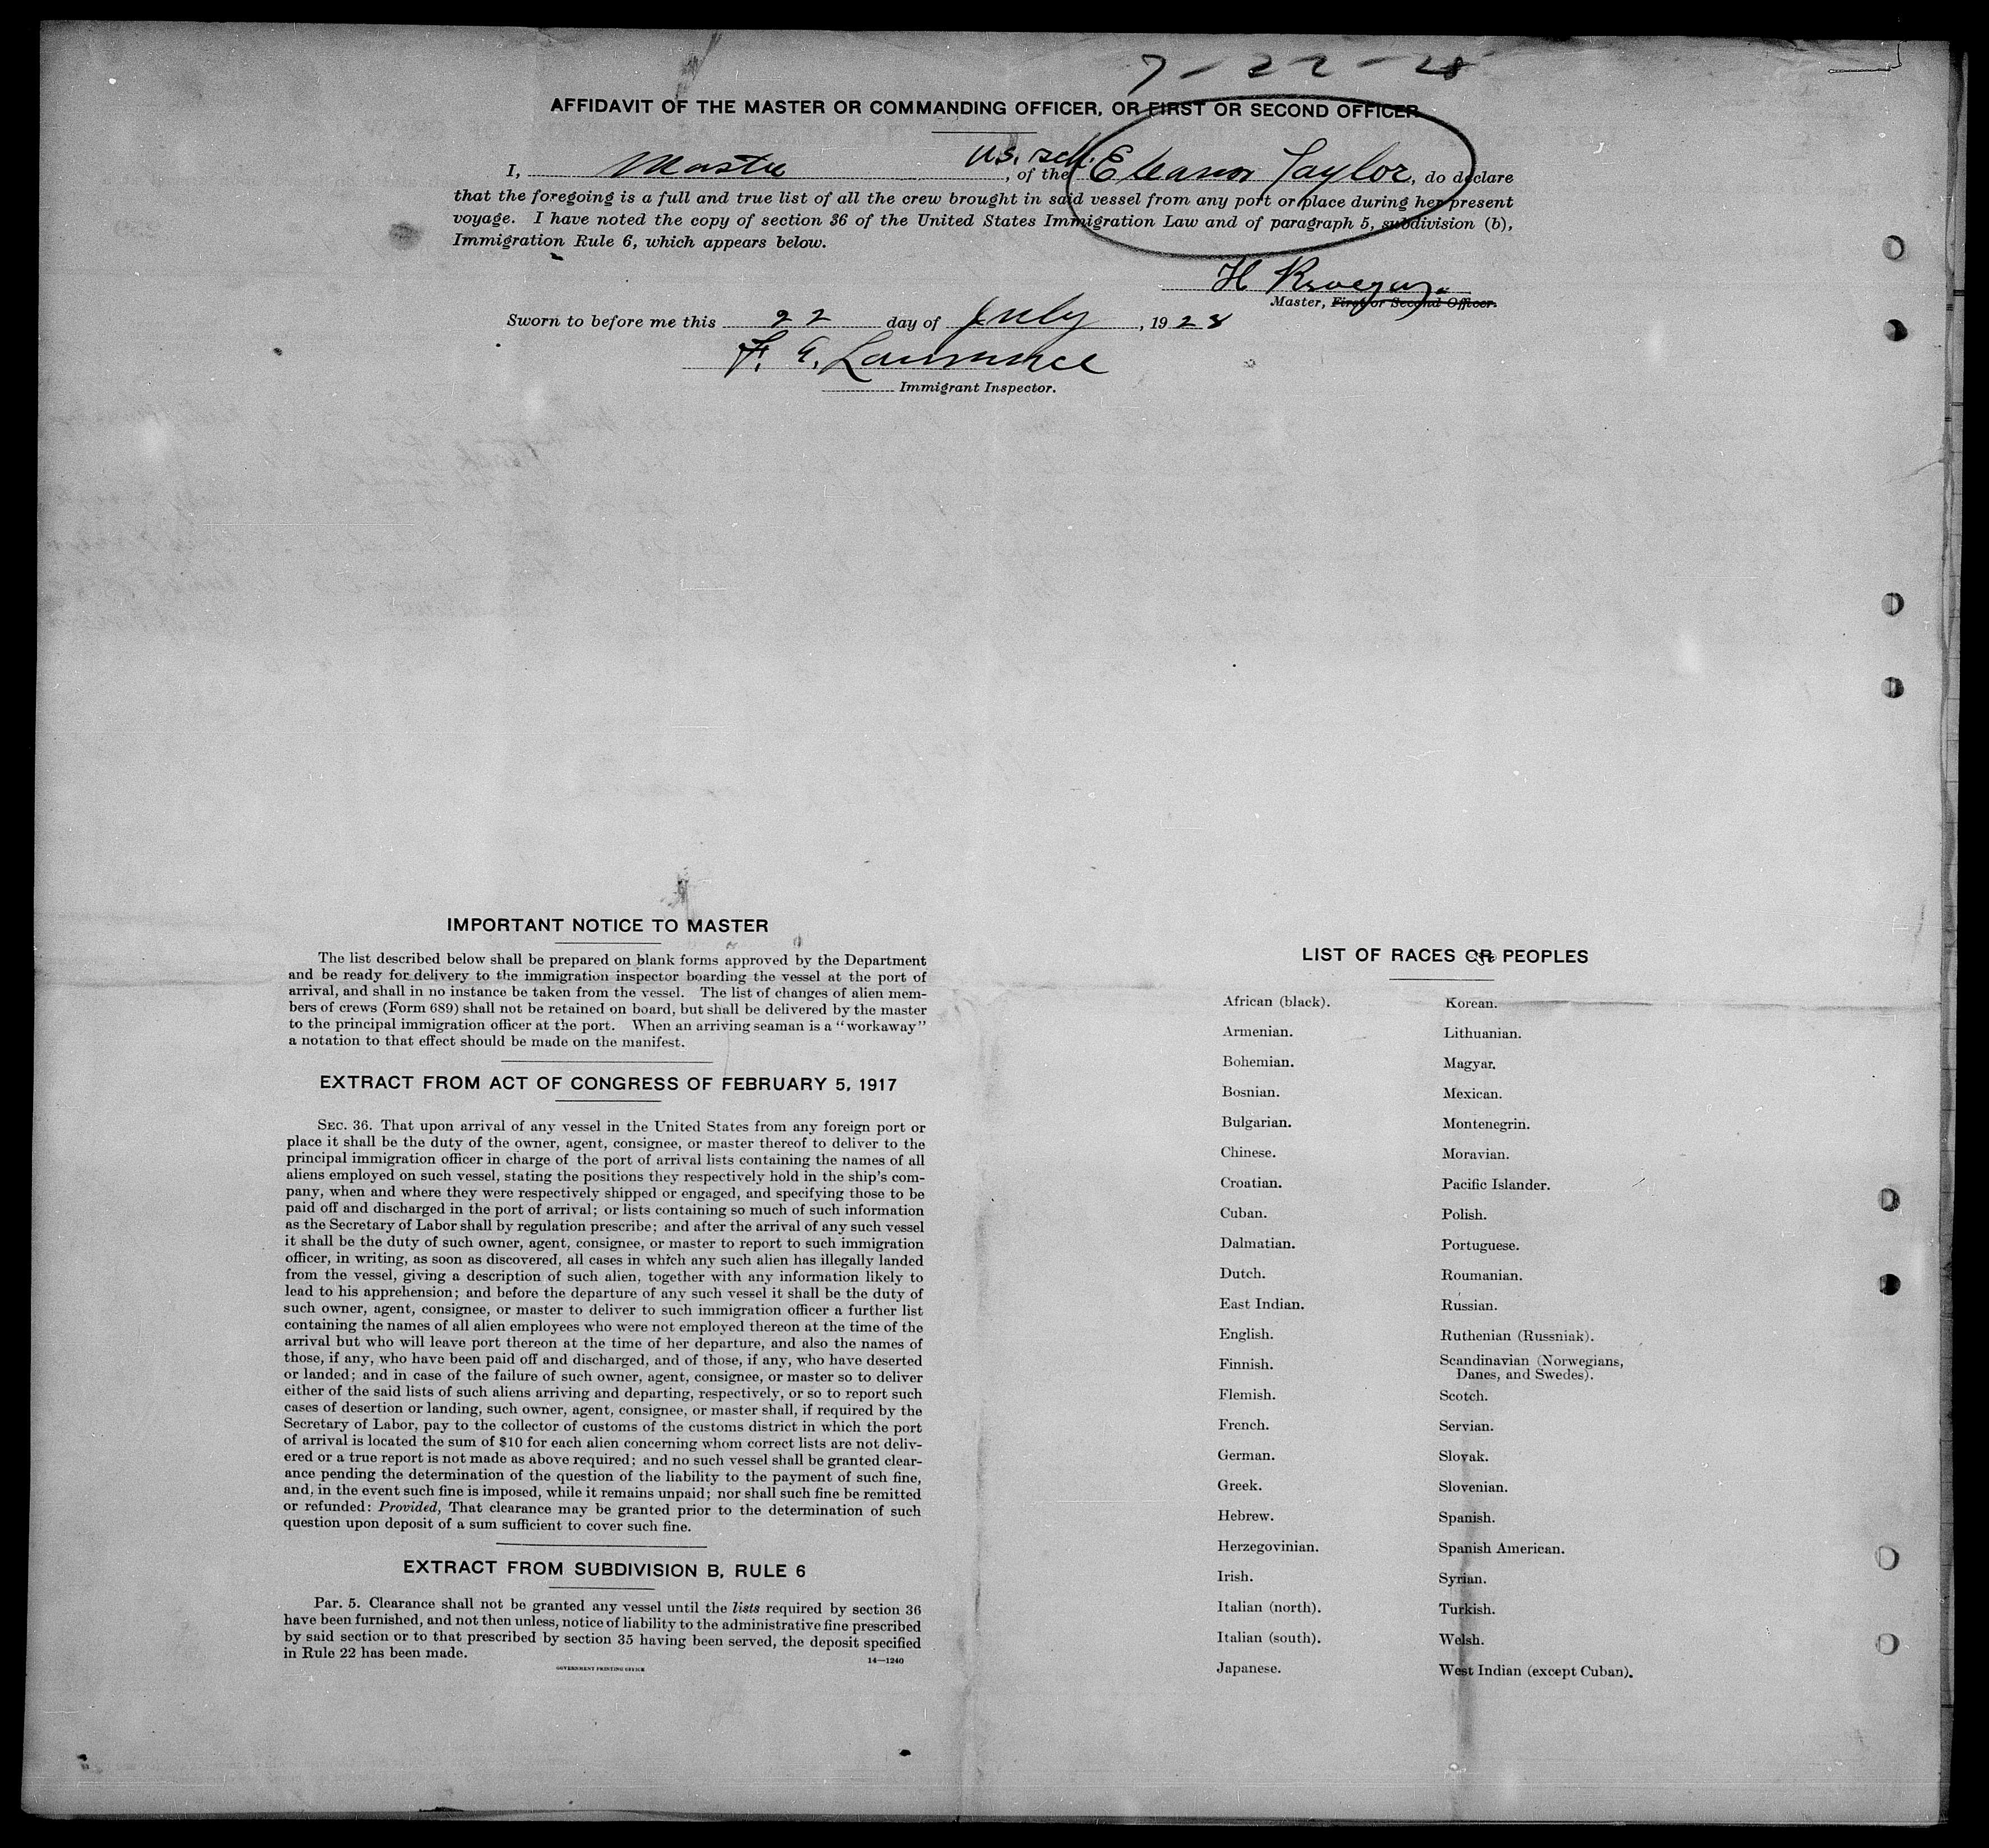 7-22-28
AFFIDAVIT OF THE MASTER OR COMMANDING OFFICER, OR FIRST OR SECOND OFFICER
I, Master, of the U.S. sch. Eleanor Taylor, do declare
that the foregoing is a full and true list of all the crew brought in said vessel from any port or place during her present
voyage. I have noted the copy of section 36 of the United States Immigration Law and of paragraph 5, subdivision (b),
Immigration Rule 6, which appears below.
H
Master, First or Second Officer.
Sworn to before me this 22 day of July, 1928
F. A. Lawrence
Immigrant Inspector.
IMPORTANT NOTICE TO MASTER
The list described below shall be prepared on blank forms approved by the Department
and be ready for delivery to the immigration inspector boarding the vessel at the port of
arrival, and shall in no instance be taken from the vessel. The list of changes of alien mem-
bers of crews (Form 689) shall not be retained on board, but shall be delivered by the master
to the principal immigration officer at the port. When an arriving seaman is a "workaway"
a notation to that effect should be made on the manifest.
EXTRACT FROM ACT OF CONGRESS OF FEBRUARY 5, 1917
SEC. 36. That upon arrival of any vessel in the United States from any foreign port or
place it shall be the duty of the owner, agent, consignee, or master thereof to deliver to the
principal immigration officer in charge of the port of arrival lists containing the names of all
aliens employed on such vessel, stating the positions they respectively hold in the ship's com-
pany, when and where they were respectively shipped or engaged, and specifying those to be
paid off and discharged in the port of arrival; or lists containing so much of such information
as the Secretary of Labor shall by regulation prescribe; and after the arrival of any such vessel
it shall be the duty of such owner, agent, consignee, or master to report to such immigration
officer, in writing, as soon as discovered, all cases in which any such alien has illegally landed
from the vessel, giving a description of such alien, together with any information likely to
lead to his apprehension; and before the departure of any such vessel it shall be the duty of
such owner, agent, consignee, or master to deliver to such immigration officer a further list
containing the names of all alien employees who were not employed thereon at the time of the
arrival but who will leave port thereon at the time of her departure, and also the names of
those, if any, who have been paid off and discharged, and of those, if any, who have deserted
or landed; and in case of the failure of such owner, agent, consignee, or master so to deliver
either of the said lists of such aliens arriving and departing, respectively, or so to report such
cases of desertion or landing, such owner, agent, consignee, or master shall, if required by the
Secretary of Labor, pay to the collector of customs of the customs district in which the port
of arrival is located the sum of $10 for each alien concerning whom correct lists are not deliv-
ered or a true report is not made as above required; and no such vessel shall be granted clear-
ance pending the determination of the question of the liability to the payment of such fine,
and, in the event such fine is imposed, while it remains unpaid; nor shall such fine be remitted
or refunded: Provided, That clearance may be granted prior to the determination of such
question upon deposit of a sum sufficient to cover such fine.
EXTRACT FROM SUBDIVISION B, RULE 6
Par. 5. Clearance shall not be granted any vessel until the lists required by section 36
have been furnished, and not then unless, notice of liability to the administrative fine prescribed
by said section or to that prescribed by section 35 having been served, the deposit specified
in Rule 22 has been made.
14—1240
GOVERNMENT PRINTING OFFICE
LIST OF RACES OR PEOPLES
African (black).
Armenian.
Bohemian.
Bosnian.
Bulgarian.
Chinese.
Croatian.
Cuban.
Dalmatian.
Dutch.
East Indian.
English.
Finnish.
Flemish.
French.
German.
Greek.
Hebrew.
Herzegovinian.
Irish.
Italian (north).
Italian (south).
Japanese.
Korean.
Lithuanian.
Magyar.
Mexican.
Montenegrin.
Moravian.
Pacific Islander.
Polish.
Portuguese.
Roumanian.
Russian.
Ruthenian (Russniak).
Scandinavian (Norwegians,
Danes, and Swedes).
Scotch.
Servian.
Slovak.
Slovenian.
Spanish.
Spanish American.
Syrian.
Turkish.
Welsh.
West Indian (except Cuban).